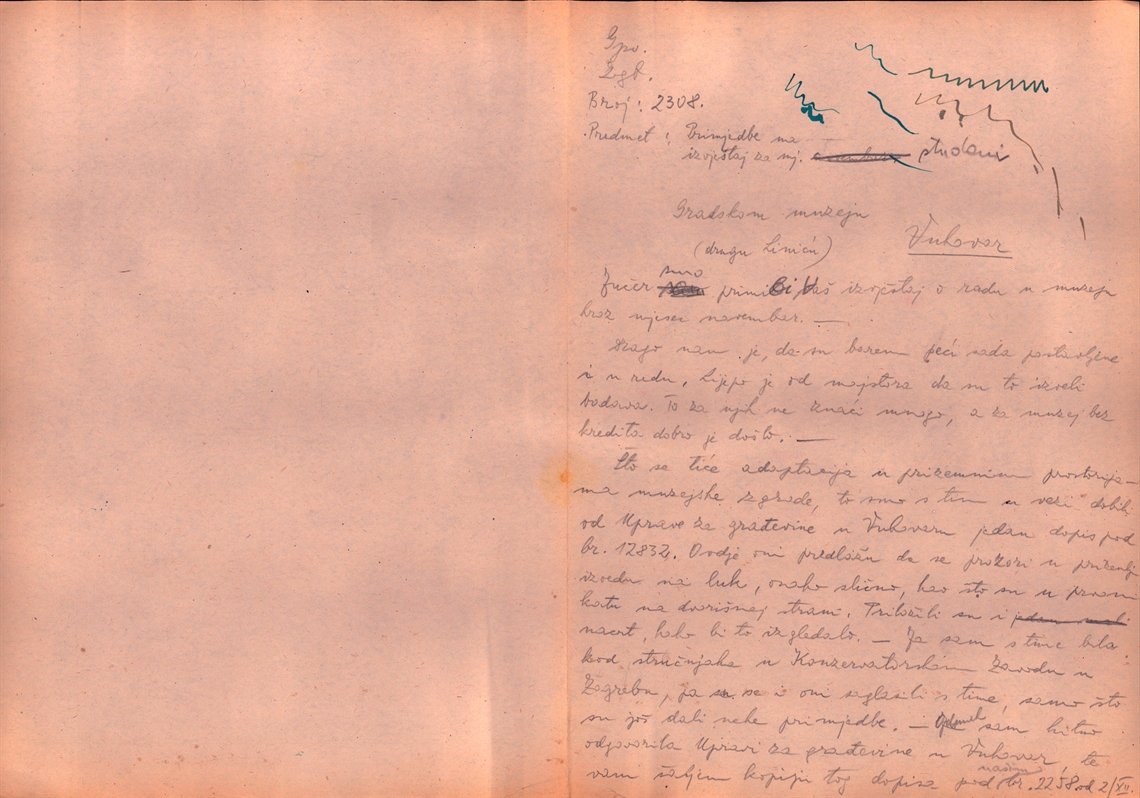 Gpo.
Zgb.
Broj: 2308.
Predmet: Primjedbe na
izvještaj za mj. studeni
Gradskom muzeju
Vukovar
(drugu Liniću)
Jučer smo primili Vaš izvještaj o radu u muzeju
kroz mjesec novembar. —
Drago nam je, da su barem peći sada postavljene
i u redu, lijepo je od majstora da su to izveli
badava. To za njih ne znači mnogo, a za muzej bez
kredita dobro je došlo. —
Što se tiče adaptacija u prizemnim prostorija-
ma muzejske zgrade, to smo s tim u vezi dobili
od Uprave za građevine u Vukovaru jedan dopis pod
br. 12832. Ovdje oni predlažu da se prozori u prizemlju
izvedu na luk, onako slično, kao što su u prvom
katu na dvorišnoj strani. Priložili su i
nacrt, kako bi to izgledalo. — Ja sam s time bila
kod stručnjaka u Konzervatorskom Zavodu u
Zagrebu, pa su se i oni saglasili s time, samo što
su još dali neke primjedbe. — sam hitno
odgovorila Upravi za građevine u Vukovar, te
vam šaljem kopiju tog dopisa pod našim br. 2258 od 2/XII.